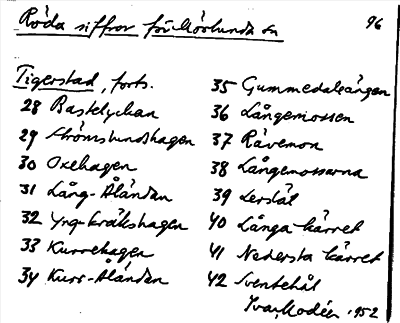 Röda siffror för Mörlunda sn
96
Tigerstad, forts.
28 Bastelyckan
29 Strömslundshagen
30 Oxehagen
31 Lång-Åländan
32 Yrq-kråkshagen
33 Kurrehagen
34 Kurr-Åländan
35 Gummedaleängen
36 Långemossen
37 Rävemon
38 Långemossarna
39 Lerslät
40 Långa kärret
41 Nedersta kärret
42 Sventehål
Ivar Modéer 1952